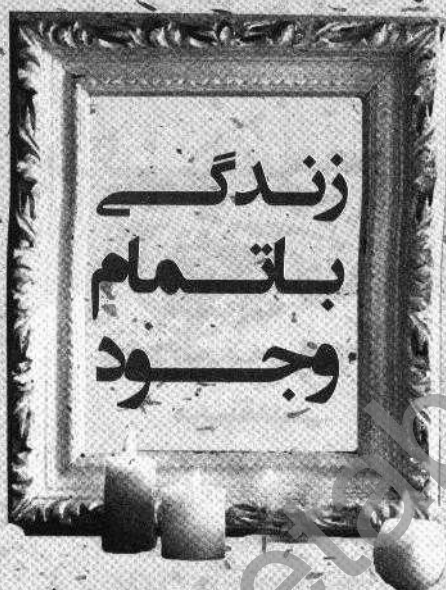 زندگی
با تمام
وجود